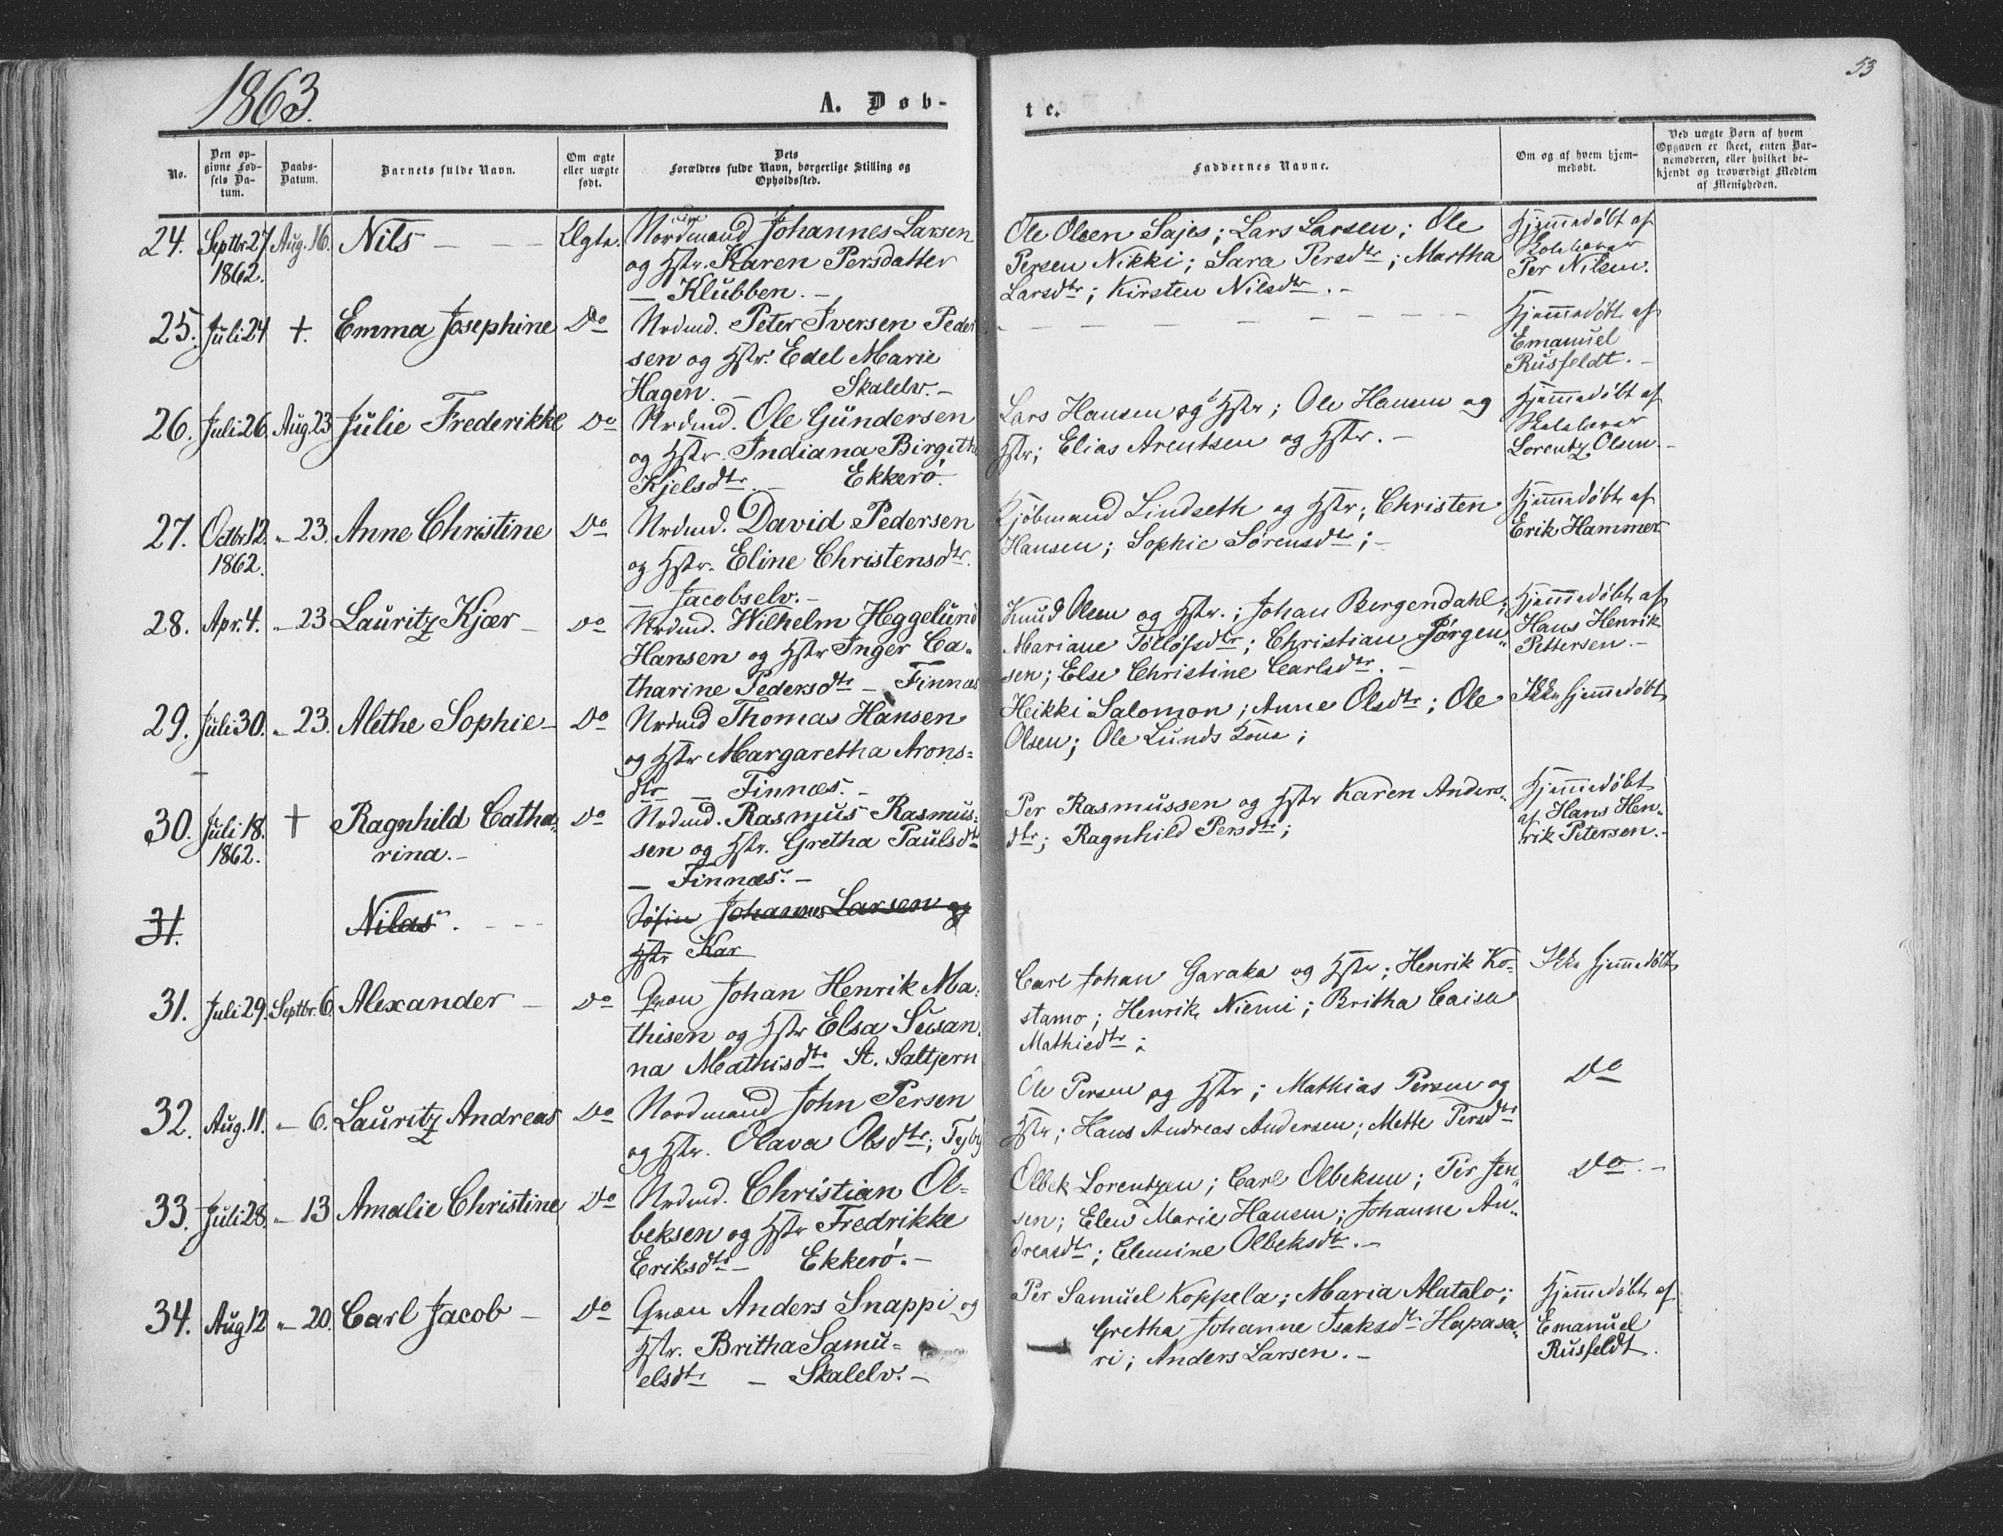 1863.
A. Døb-
te.
53
No.
Den op-
givne Fød-
sels Da-
tum.
Daabs-
Datum.
Barnets fulde Navn.
Om ægte
eller uægte
født.
Dets
Forældres fulde Navn, borgerlige Stilling og
Opholdssted.
Faddernes Navne.
Om og af hvem hjem-
medøbt.
Ved uægte Børn af hvem
Opgaven er skeet, enten Bar-
nemoderen, eller hvilket be-
kjendt og troværdigt Medlem
af Menigheden.
24. Septbr 27 Aug. 16. Nils Ægte. Nordmand Johannes Larsen
1862. og Hstr. Karen Persdatter
— Klubben. —
Ole Olsen Sajes; Lars Larsen; Ole
Persen Nikki; Sara Persdtr; Martha
Larsdtr; Kirsten Nilsdtr. —
Hjemmedøbt af
Skolelærer
Per Nilsen.
25. Juli 24 +. Emma Josephine Do Nrdmd. Peter Iversen Peder
sen og Hstr. Edel Marie
Hagen. — Skalelv. —
Hjemmedøbt af
Emanuel
Rusfeldt. —
26. Juli 26. Aug 23 Julie Frederikke Do Nrdmd. Ole Gundersen
og Hstr. Indiana Birgith
Kjelsdtr. — Ekkerø.
Lars Hansen og Hstr; Ole Hansen og
Hstr; Elias Arentsen og Hstr. —
Hjemmedøbt af
Skolelærer
Lorentz Olsen. —
27. Octbr 12. „ 23. Anne Christine Do Nrdmd. David Pedersen
1862. og Hstr. Eline Christensdtr.
— Jacobselv. —
Kjøbmand Lindseth og Hstr; Christen
Hansen; Sophie Sørensdtr; —
Hjemmedøbt af
Erik Hammer
28. Apr. 4. „ 23 Lauritz Kjær — Do Nrdmd. Wilhelm Heggelund
Hansen og Hstr Inger Ca-
tharine Pedersdtr — Finnæs
Knud Olsen og Hstr.; Johan Bergendahl;
Mariane Tølløfsdtr; Christian Jørgen-
sen; Else Christine Carlsdtr. —
Hjemmedøbt af
Hans Henrik
Pettersen. —
29. Juli 30. „ 23. Alethe Sophie — Do Nrdmd Thomas Hansen
og Hstr Margaretha Arons-
dtr — Finnæs. —
Heikki Salomon; Anne Olsdtr; Ole
Olsen; Ole Lunds Kone;
Ikke hjemmedøbt
30. Juli 18. + Ragnhild Catha- Do Nrdmd. Rasmus Rasmus-
1862. rina. — sen og Hstr. Gretha Paulsdtr
— Finnæs. —
Per Rasmussen og Hstr Karen Anders-
dtr; Ragnhild Persdtr;
Hjemmedøbt
af Hans Hen-
rik Petersen. —
31. Nilas. Søfin Johannes Larsen og
Hstr Kar
31. Juli 29. Septbr. 6. Alexander — Do Qvæn Johan Henrik Ma-
thisen og Hstr Elsa Susan-
na Mathisdtr St. Saltjern
Carl Johan Garaka og Hstr; Henrik Ko-
stamo; Henrik Niemi; Britha Caisa
Mathiedtr;
Ikke hjemmedøbt
32. Aug. 11. „ 6. Lauritz Andreas Do Nordmand John Persen
og Hstr. Olava Olsdtr; Tyby
Ole Persen og Hstr; Mathias Persen og
Hstr; Hans Andreas Andersen; Mette Persdtr
Do
33. Juli 28. „ 13 Amalie Christine Do Nrdmd. Christian Ol-
beksen og Hstr Fredrikke
Eriksdtr — Ekkerø. —
Olbek Lorentzen; Carl Olbeksen; Per Jen-
sen; Elen Marie Hansen; Johanne An-
dreasdtr; Elemine Olbeksdtr. —
Do. —
34. Aug 12 „ 20. Carl Jacob — Do Qvæn Anders Snappi og
Hstr. Britha Samu-
elsdtr — Skalelv. —
Per Samuel Koppela; Maria Alatalo;
Gretha Johanne Isaksdtr Hapasa-
ri; Anders Larsen. —
Hjemmedøbt af
Emanuel
Rusfeldt.